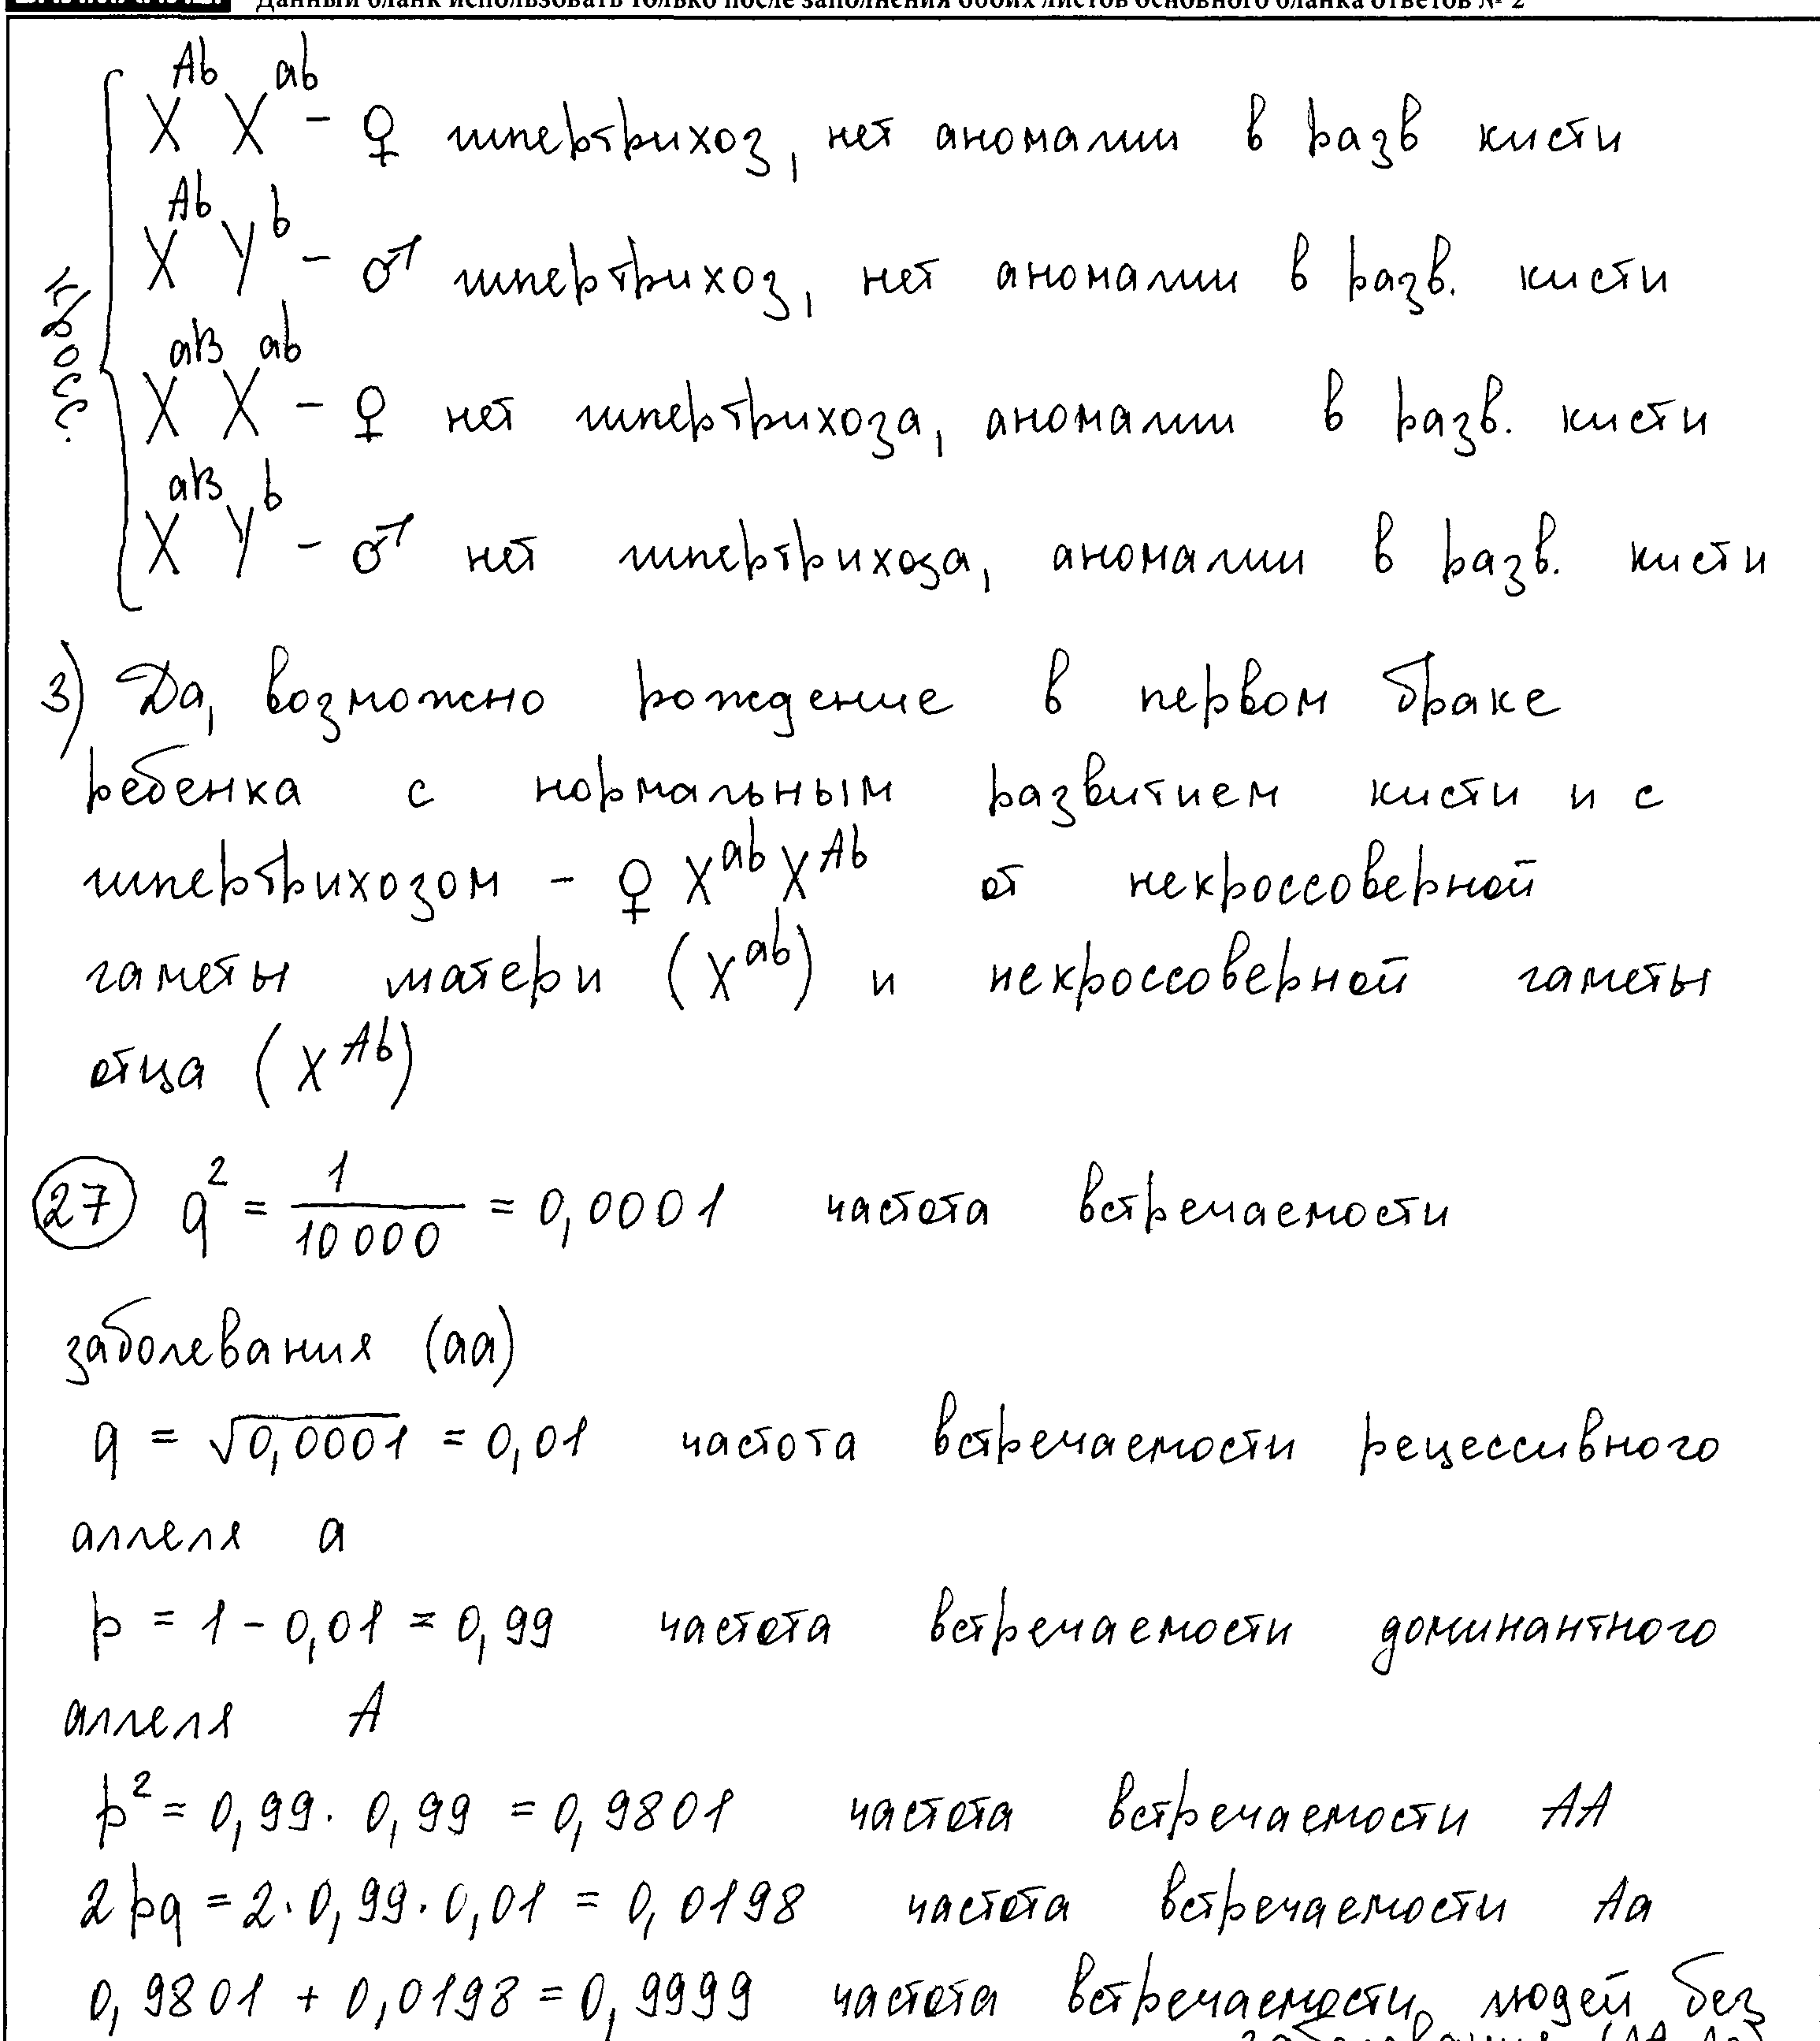 Данный бланк использовать только после заполнения обоих листов основного бланка ответов № 2
X^Ab X^ab - ♀ гипертрихоз, нет аномалии в разв кисти
X^Ab Y^b - ♂ гипертрихоз, нет аномалии в разв. кисти
кросс.
X^aB X^ab - ♀ нет гипертрихоза, аномалии в разв. кисти
X^aB Y^b - ♂ нет гипертрихоза, аномалии в разв. кисти
3) Да, возможно рождение в первом браке
ребенка с нормальным развитием кисти и с
гипертрихозом - ♀ X^ab X^Ab от некроссоверной
гаметы матери (X^ab) и некроссоверной гаметы
отца (X^Ab)
27 q² = 1/10000 = 0,0001 частота встречаемости
заболевания (аа)
q = √0,0001 = 0,01 частота встречаемости рецессивного
аллеля а
p = 1 - 0,01 = 0,99 частота встречаемости доминантного
аллеля А
p² = 0,99 · 0,99 = 0,9801 частота встречаемости АА
2pq = 2 · 0,99 · 0,01 = 0,0198 частота встречаемости Аа
0,9801 + 0,0198 = 0,9999 частота встречаемости людей без